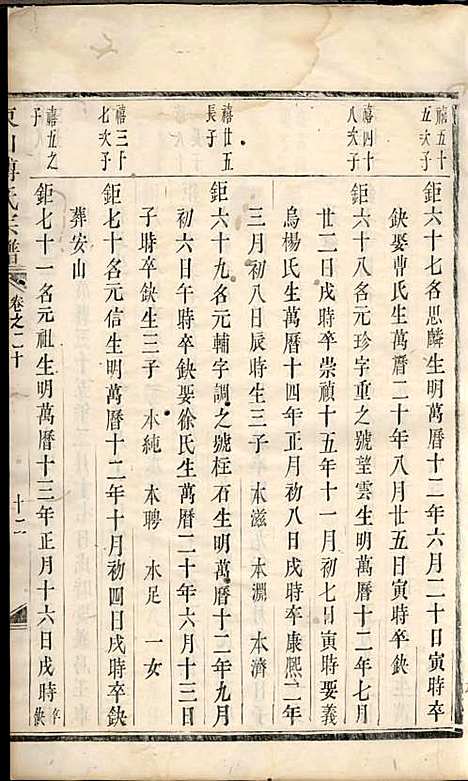 禧五十五次子
鉅六十七名思麟生明萬曆十二年六月二十日寅時卒
缺娶曹氏生萬曆二十年八月廿五日寅時卒缺
禧四十八次子
鉅六十八名元珍字重之號望雲生明萬曆十二年七月
廿二日戌時卒崇禎十五年十一月初七日寅時娶義
烏楊氏生萬曆十四年正月初八日戌時卒康熙二年
三月初八日辰時生三子 本滋 本淵 本濟
禧廿五長子
鉅六十九名元輔字調之號柱石生明萬曆十二年九月
初六日午時卒缺娶徐氏生萬曆二十年六月十三日
子時卒缺生三子 本純 本聘 本足 一女
禧三十七次子
鉅七十名元信生明萬曆十二年十月初四日戌時卒缺
葬安山
禧五之子
鉅七十一名元祖生明萬曆十三年正月十六日戌時卒缺
傅氏宗譜 卷之二十 十二